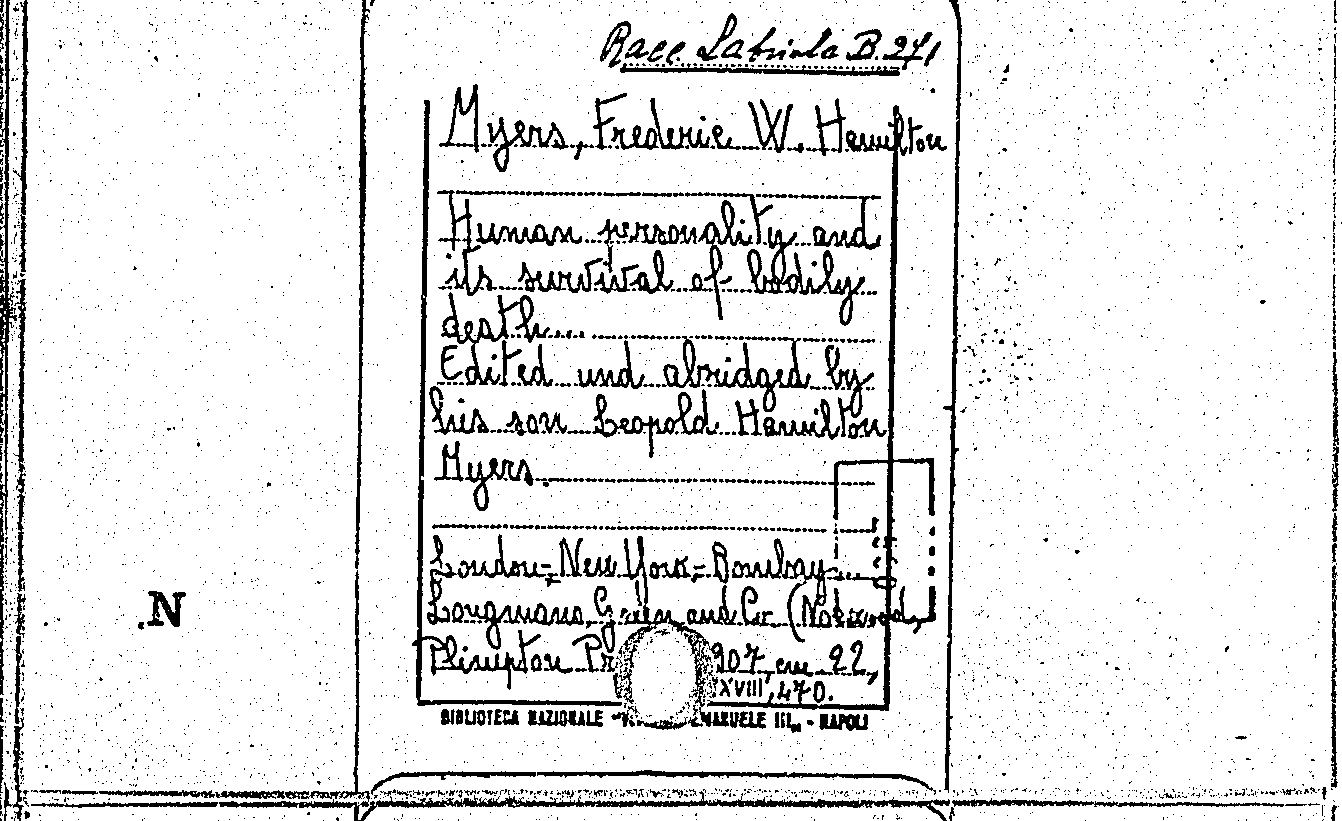 Racc. Labriola B. 271
Myers, Frederic W. Hamilton
Human personality and
its survival of bodily
death...
Edited und abridged by
his son Leopold Hamilton
Myers.
London-, New York-, Bombay...
Longmans, Green and Co. (Norwood,
Plimpton Pr 907, cm 22,
XVIII, 470.
.N
BIBLIOTECA NAZIONALE - MANUELE III„ - NAPOLI